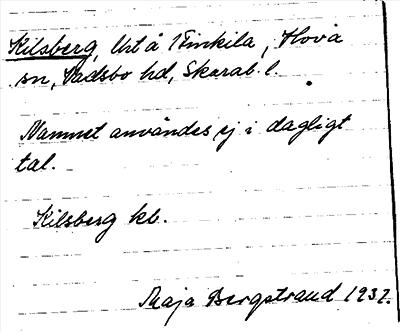 Kilsberg, Urt å Finkila, Hova
sn, Vadsbo hd, Skarab. l.
Namnet användes ej i dagligt
tal.
Kilsberg kb.
Maja Bergstrand 1937.